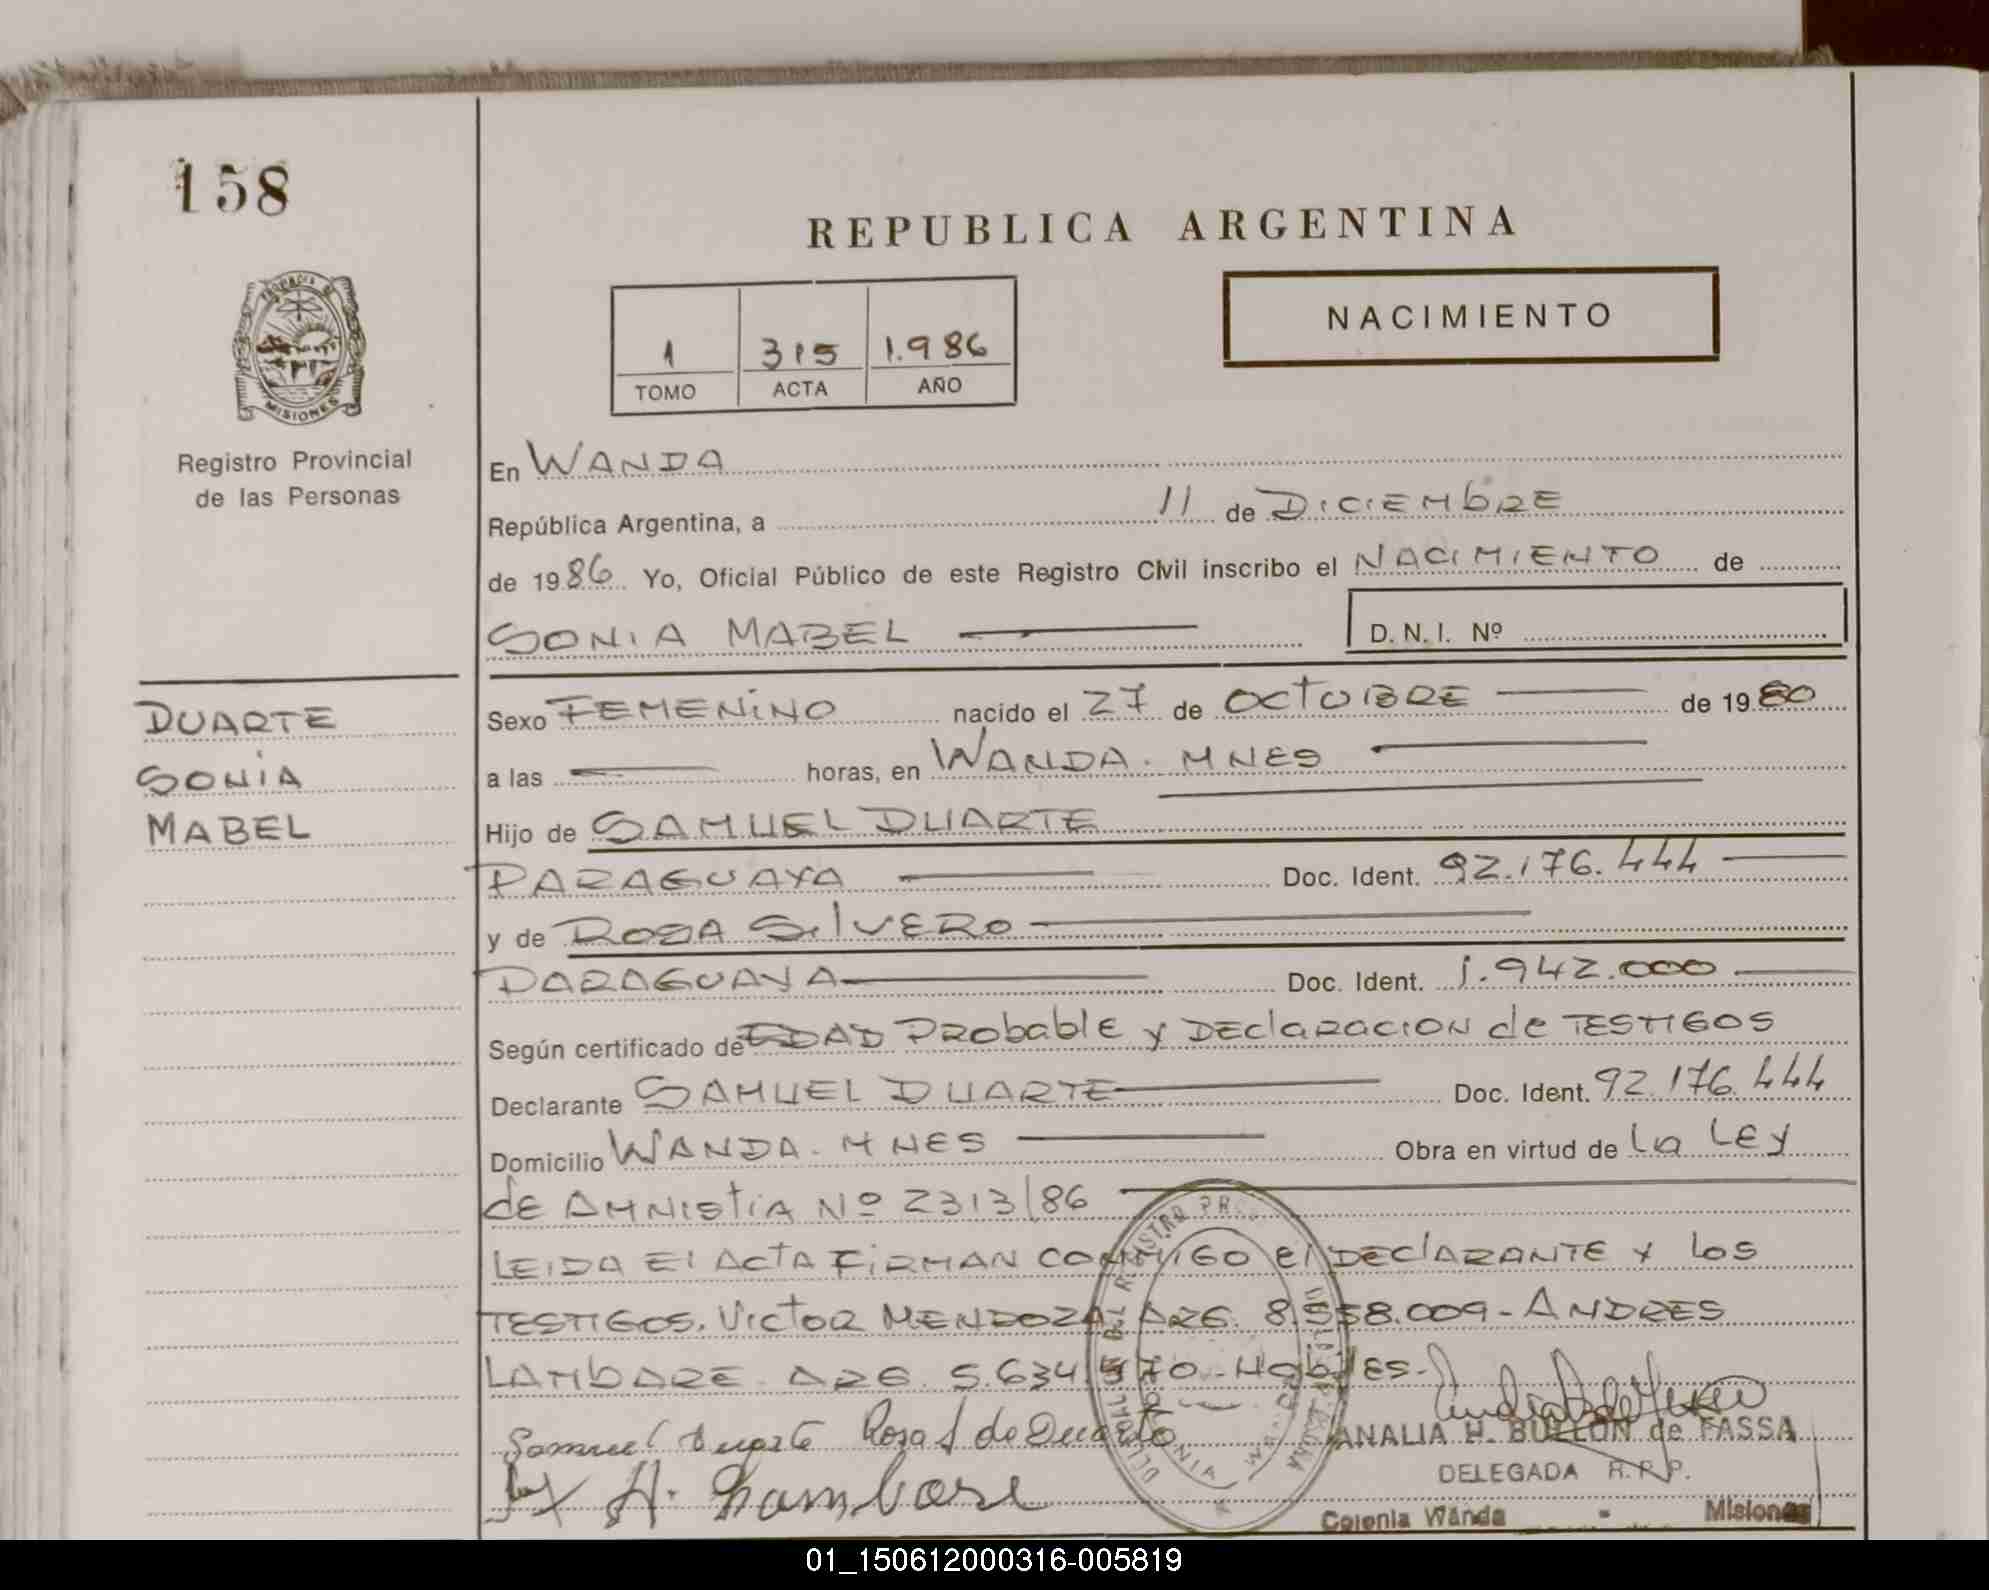 158
REPUBLICA ARGENTINA
1 315 1.986
TOMO ACTA AÑO
NACIMIENTO
PROVINCIA DE
MISIONES
Registro Provincial
de las Personas
En WANDA
República Argentina, a 11 de DICIEMbRE
de 1986 Yo, Oficial Público de este Registro Civil inscribo el NACIMIENTO de
SONIA MABEL
D. N. I. Nº
DUARTE
SONIA
MABEL
Sexo FEMENINO nacido el 27 de OCTUBRE de 1980
a las horas, en WANDA. MNES
Hijo de SAMUEL DUARTE
PARAGUAYA Doc. Ident. 92.176.444
y de ROSA SilVERO
PARAGUAYA Doc. Ident. 1.942.000
Según certificado de EDAD PRObablE y DEClaRACION de TESTIGOS
Declarante SAMUEL DUARTE Doc. Ident. 92.176.444
Domicilio WANDA. MNES Obra en virtud de la LEy
dE AMNISTIA Nº 2313/86
LEIDA El ACTA FIRMAN CONMIGO El DEClARANTE y los
TESTIGOS. VICTOR MENDOZA ARG. 8.558.009 - ANDRES
LAMbARE ARG. 5.634.570 - HabilES -
Samuel Duarte Rosa S de Duarte
ANALIA H. BULLON de FASSA
DELEGADA R.P.P.
A. Lambare
Colonia Wanda - Misiones
01_150612000316-005819